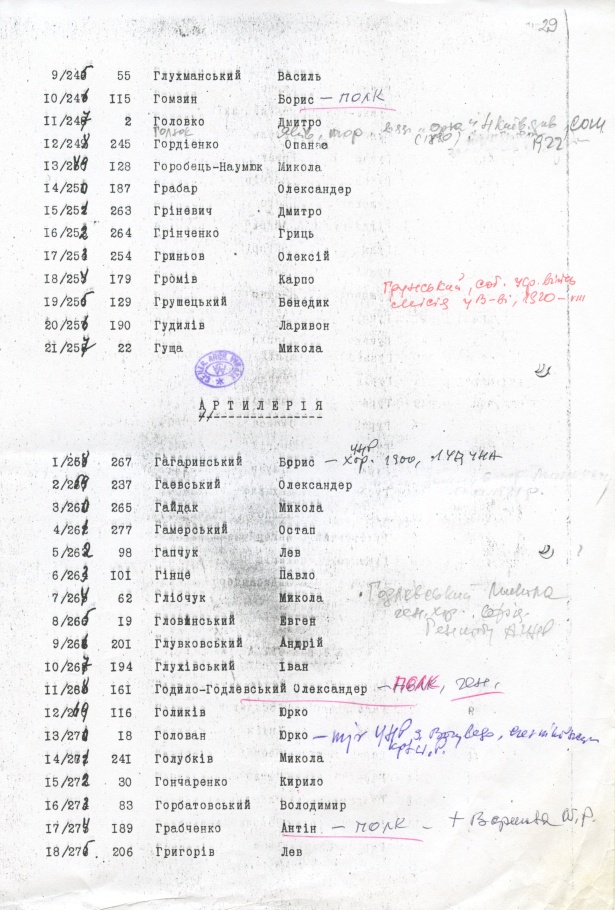 29
9/245 55 Глухманський Василь
10/246 115 Гомзин Борис — полк
11/247 2 Головко Дмитро
12/248 245 Гордієнко Опанас
13/249 128 Горобець-Наумюк Микола
14/250 187 Грабар Олександер
15/251 263 Гріневич Дмитро
16/252 264 Грінченко Гриць
17/253 254 Гриньов Олексій
18/254 179 Громів Карпо
Грунський, сот. Укр. військ.
19/255 129 Грушецький Бенедик
місія у В-ві, 1920-VIII
20/256 190 Гудилів Ларивон
21/257 22 Гуща Микола
АРТИЛЕРІЯ
1/258 267 Гагаринський Борис — УНР хор. 1900,
2/259 237 Гаєвський Олександер
3/260 265 Гайдак Микола
4/261 277 Гамерський Остап
5/262 98 Гапчук Лев
6/263 101 Гінце Павло
7/264 62 Глібчук Микола
Годлевський Микола
ген. хор.
8/265 19 Гловінський Евген
9/266 201 Глувковський Андрій
10/267 194 Глухівський Іван
11/268 161 Годило-Годлевський Олександер — полк, ген.
12/269 116 Голиків Юрко
13/270 18 Голован Юрко — УНР, з
14/271 241 Голубків Микола
15/272 30 Гончаренко Кирило
16/273 83 Горбатовський Володимир
17/274 189 Грабченко Антін — полк —
18/275 206 Григорів Лев